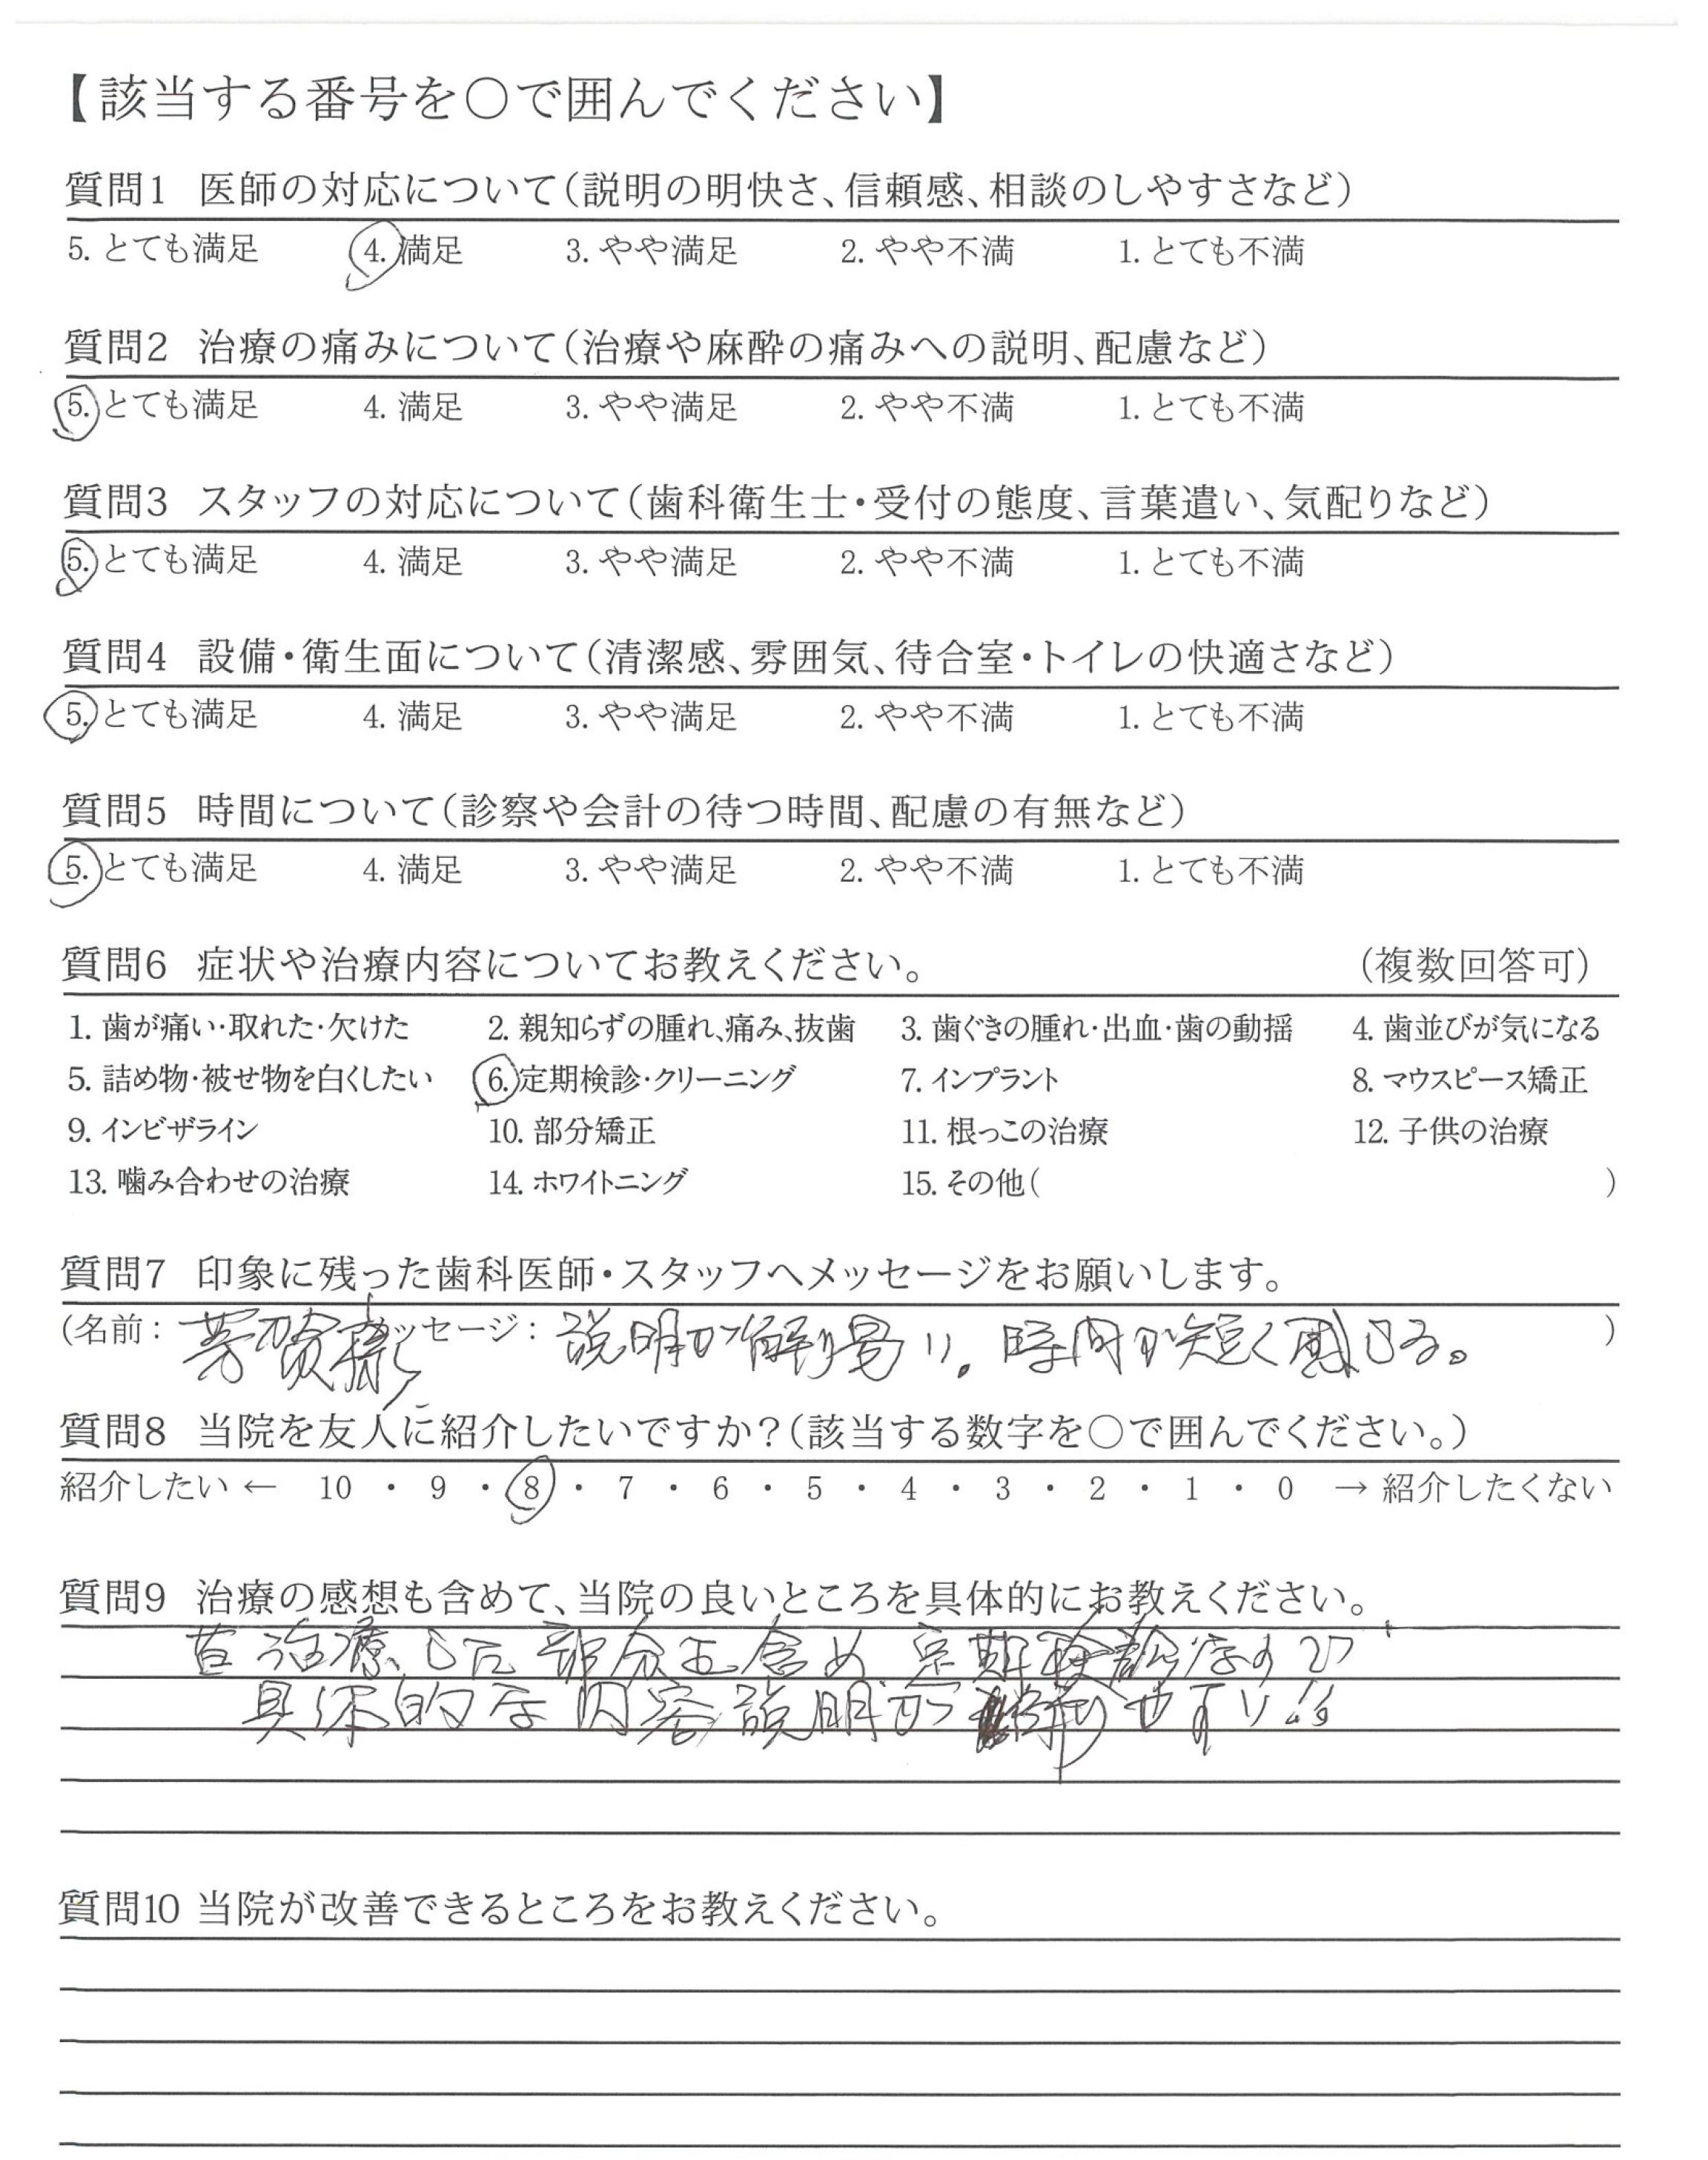 【該当する番号を〇で囲んでください】
質問1 医師の対応について(説明の明快さ、信頼感、相談のしやすさなど)
5. とても満足 4. 満足 3. やや満足 2. やや不満 1. とても不満
質問2 治療の痛みについて(治療や麻酔の痛みへの説明、配慮など)
5. とても満足 4. 満足 3. やや満足 2. やや不満 1. とても不満
質問3 スタッフの対応について(歯科衛生士・受付の態度、言葉遣い、気配りなど)
5. とても満足 4. 満足 3. やや満足 2. やや不満 1. とても不満
質問4 設備・衛生面について(清潔感、雰囲気、待合室・トイレの快適さなど)
5. とても満足 4. 満足 3. やや満足 2. やや不満 1. とても不満
質問5 時間について(診察や会計の待つ時間、配慮の有無など)
5. とても満足 4. 満足 3. やや満足 2. やや不満 1. とても不満
質問6 症状や治療内容についてお教えください。 (複数回答可)
1. 歯が痛い・取れた・欠けた 2. 親知らずの腫れ、痛み、抜歯 3. 歯ぐきの腫れ・出血・歯の動揺 4. 歯並びが気になる
5. 詰め物・被せ物を白くしたい 6. 定期検診・クリーニング 7. インプラント 8. マウスピース矯正
9. インビザライン 10. 部分矯正 11. 根っこの治療 12. 子供の治療
13. 噛み合わせの治療 14. ホワイトニング 15. その他( )
質問7 印象に残った歯科医師・スタッフへメッセージをお願いします。
(名前: 芳賀様 メッセージ: 説明が解り易い。時間が短く感じる。 )
質問8 当院を友人に紹介したいですか?(該当する数字を〇で囲んでください。)
紹介したい ← 10 ・ 9 ・ 8 ・ 7 ・ 6 ・ 5 ・ 4 ・ 3 ・ 2 ・ 1 ・ 0 → 紹介したくない
質問9 治療の感想も含めて、当院の良いところを具体的にお教えください。
昔治療した部分も含め定期検診なので
具体的な内容説明が解りやすい!!
質問10 当院が改善できるところをお教えください。